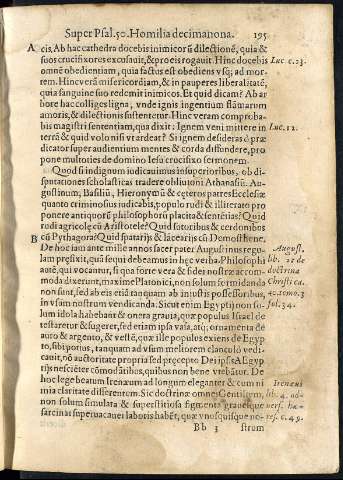 Super Psal.50. Homilia decimanona. 195
A cis. Ab hac cathedra docebis inimicorũ dilectionē, quia &
suos crucifixores excusauit, & pro eis rogauit. Hinc docebis Luc c.23.
omnē obedientiam, quia factus est obediens vsq; ad mor-
tem. Hinc verā misericordiam, & in pauperes liberalitatē,
quia sanguine suo redemit inimicos. Et quid dicam? Ab ar
bore hac colliges ligna, vnde ignis ingentium flāmarum
amoris, & dilectionis sustentetur. Hinc veram comproba-
bis magistri sententiam, qua dixit: Ignem veni mittere in Luc.12.
terrā & quid volo nisi vt ardeat? Si ignem desideras ò præ
dicator super audientium mentes & corda diffundere, pro
pone multoties de domino Iesu crucifixo sermonem.
Quod si indignum iudicauimus in superioribus, ob di-
sputationes scholasticas tradere obliuioni Athanasiũ, Au-
gustinum, Basiliũ, Hieronymũ & cęteros patres Ecclesiæ
quanto criminosius iudicabis, populo rudi & illiterato pro
ponere antiquorũ philosophorũ placita & sentētias? Quid
rudi agricolę cum Aristotele? Quid sutoribus & cerdonibus
B cũ Pythagora? Quid spatarijs & lācearijs cũ Demosthene.
De hoc iam ante mille annos sacer pater Augustinus regu- August.
lam pręfixit, quā sequi debeamus in hęc verba. Philosophi lib. 2. de
autē, qui vocantur, si qua forte vera & fidei nostræ accom- doctrina
moda dixerunt, maximè Platonici, non solum formidanda Christi ca.
non sunt, sed ab eis etiā tanquam ab iniustis possessoribus, 40. tomo.3
in vsum nostrum vendicanda. Sicut enim Egyptij non so- fol.34.
lum idola habebant & onera grauia, quæ populus Israel de
testaretur & fugeret, sed etiam vasa, atq; ornamenta de
auro & argento, & vestē, quæ ille populus exiens de Egyp
to, sibi potius, tanquam ad vsum meliorem clanculò vedi-
cauit, nō auctoritate propria sed pręcepto Dei ipsis Ægyp
tijs nesciēter cōmodātibus, quibus non bene vtebātur. De
hoc lege beatum Irenæum ad longum eleganter & cum ni Ireneus
mia claritate differentem. Sic doctrinæ omnes Gentilium, lib. 4. ad-
non solum simulata & superstitiosa figmenta grauesque vers. hæ-
sarcinas superuacanei laboris habēt, quæ vnusquisque no- res c.49.
Bb 3 strum